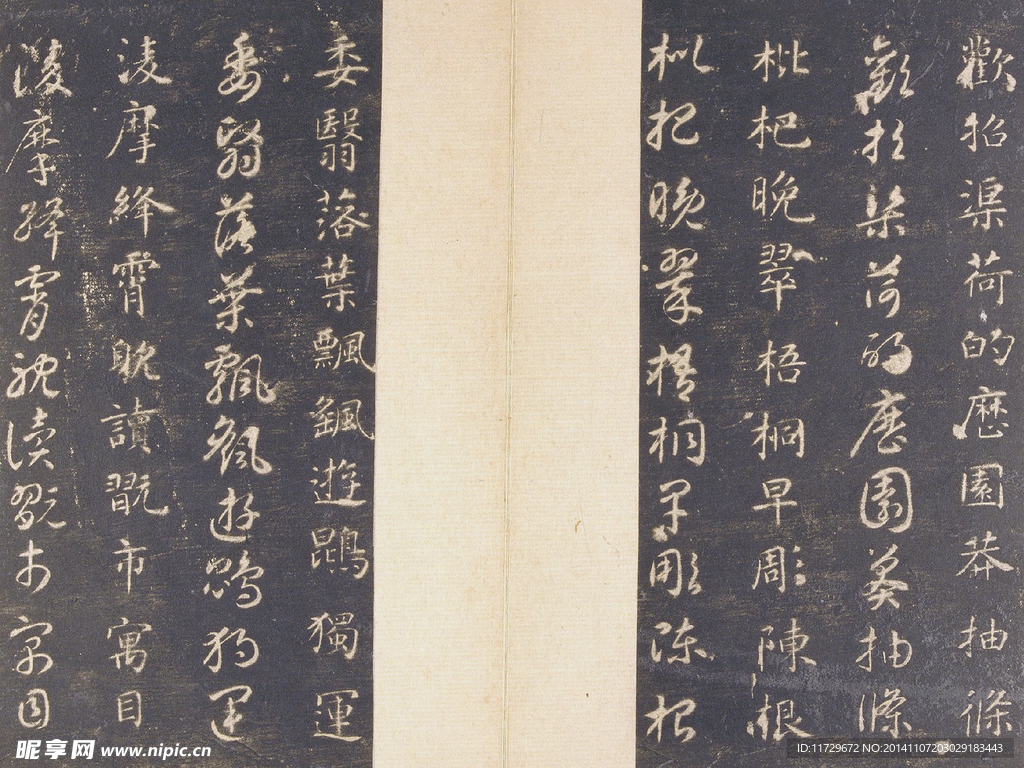 歡招渠荷的歷園莽抽條
歡招渠荷的歷園莽抽條
枇杷晚翠梧桐早彫陳根
枇杷晚翠梧桐早彫陳根
委翳落葉飄颻遊鵾獨運
委翳落葉飄颻遊鵾獨運
凌摩絳霄耽讀翫市寓目
凌摩絳霄耽讀翫市寓目
昵享网 www.nipic.cn
ID:11729672 NO:20141107203029183443